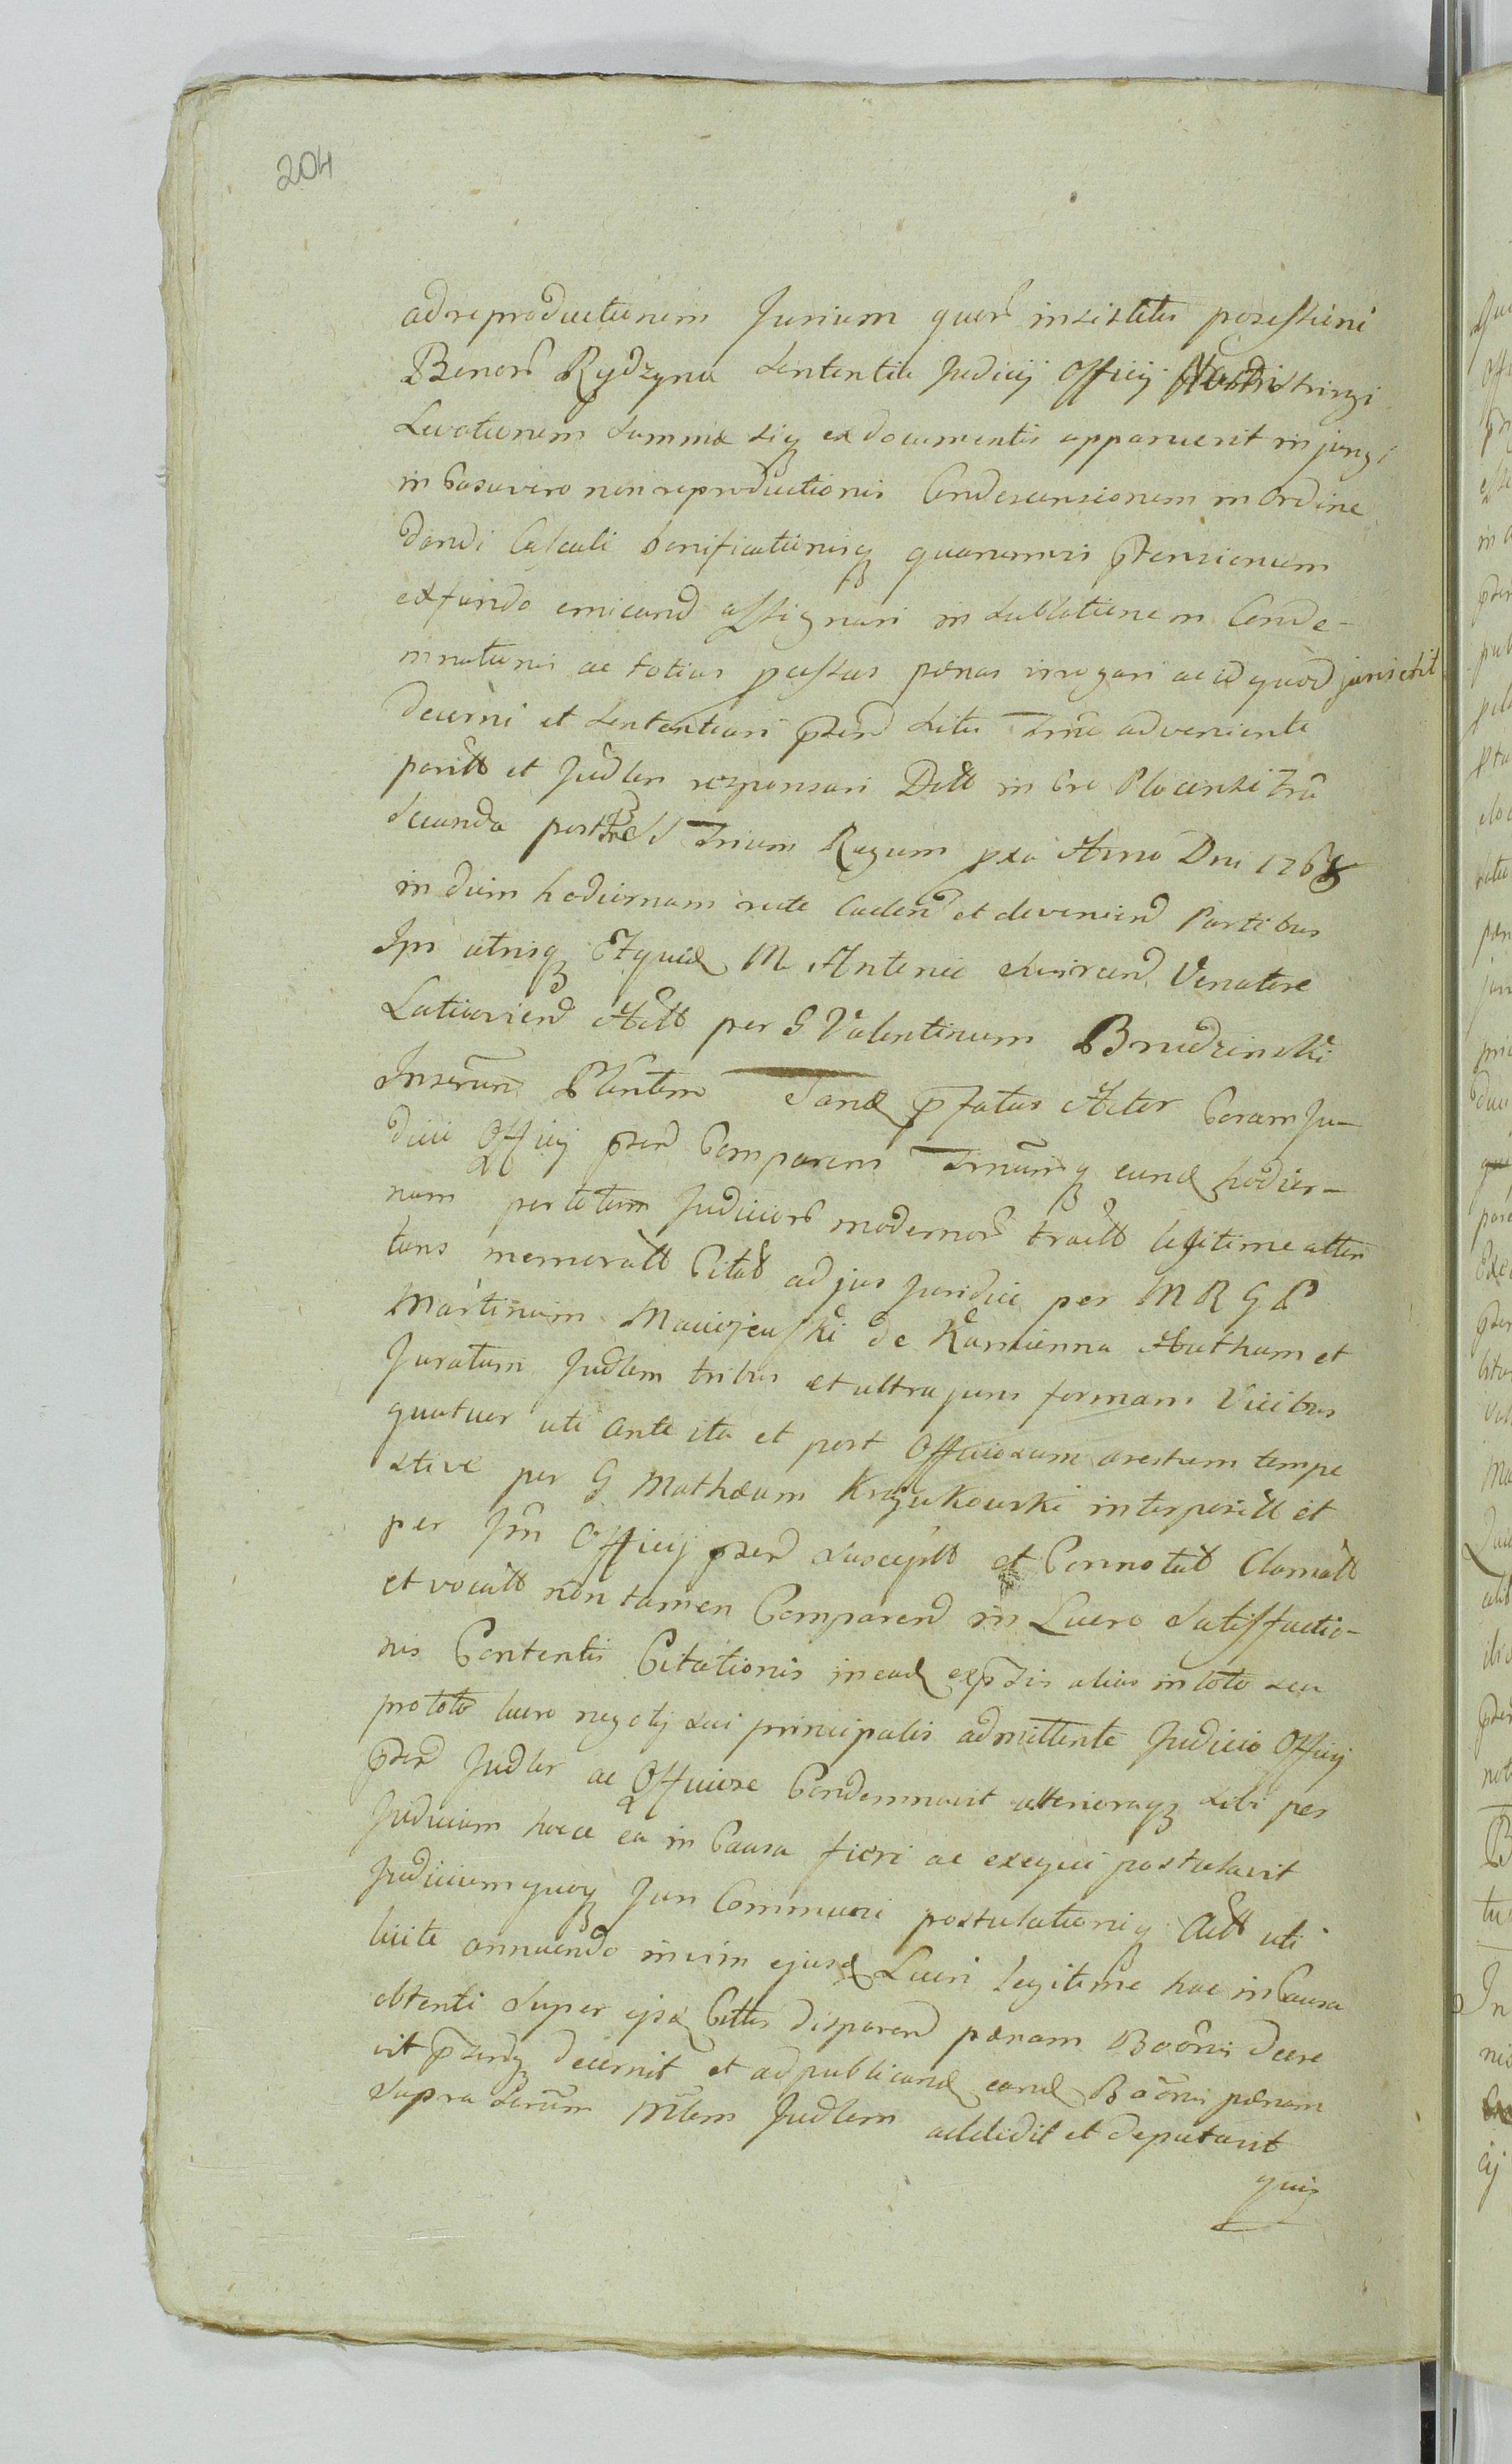 204
ad reproductionem Jurium quorũ insistitis possessioni
Bonorũ Rydzyna Sententia Judicij Officij stringi
Levationem Summæ siq ex documentis apparuerit injungi
in Casu vero non reproductionis Condescensionem in ordine
dandi Calculi bonificationisq quarumvis ptensionum
ex fundo emicand assignari in sublationem Conde-
mnationis ac totius passus pænas irrogari ac id quod juris erit
decerni et sententiari psen Litis Trno adveniente
positt et Judlr responsuri Dett in Cro Plocensi Fria
Secunda post Trium Regum pxa Anno Dni 1768
in diem hodiernam recte Caden et devenien Partibus
Ipi utrisq Et quid M Antonio Venatore
Latiovien Actt per G Valentinum Brudzinski
Inserũn Plentem Tand pfatus Actor Coram Ju-
dicio Officij psen Comparens Trnumq eund hodier-
num per totum Judiciorũ modernorũ tractt legitime atten
tans memoratt Citat ad jus Juridice per M R G P
Martinum Maciojewski de Kamienna Autham et
Juratum Judlem tribus et ultra juris formam Vicibus
quatuor uti ante ita et post Officiosum arestum tempe
stive per G Mathæum Krajukowski interpositt et
per Jm Officij psen susceptt et Connotat Clamatt
et vocatt non tamen Comparen in Lucro Satisfactio-
nis Contentis Citationis in ead expssis alias in toto seu
pro toto lucro negotij sui principalis admittente Judicio Officij
psen Judlr ac Officiose Condemnavit ulterioraq sibi per
Judicium hocce ea in Causa fieri ac exequi postulavit
Judiciumquoq Juri Communi postulationiq Actt uti
licite annuendo in vim ejusd Lucri legitime hac in Causa
obtenti super ipsa Cittis disparen pænam Boõnis decre
vit psensq decernit et ad publicand eand Boõnis pænam
Supra Scrum Mlem Judlem addidit et deputavit
quiq